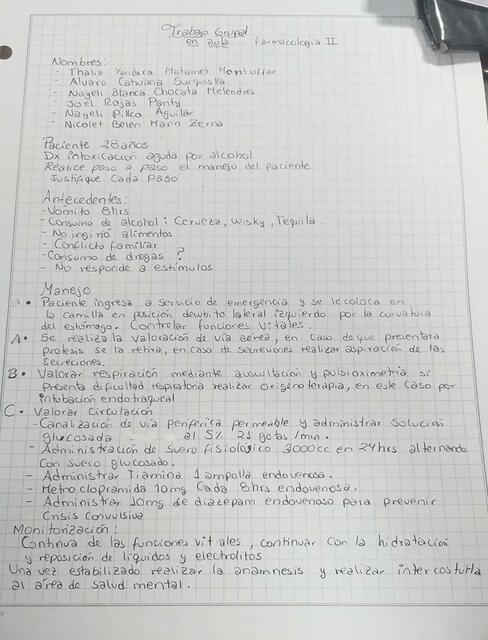 Trabajo Grupal
en aula farmacología II
Nombres:
- Thalia Yandira Matamet Montufiar
- Alvaro Cahuana Surquislla
- Nayeli Blanca Chocata Melendres
- Joel Rojas Panty
- Nayeli Pillco Aguilar
- Nicolet Belen Marin Zerna
Paciente 28 años
DX intoxicación aguda por alcohol
Realice paso a paso el manejo del paciente
Justifique Cada Paso
Antecedentes:
- Vomito 8hrs
- Consumo de alcohol: Cerveza, Wisky, Tequila.
- No ingirió alimentos
- Conflicto familiar
- Consumo de drogas ?
- No responde a estimulos
Manejo
• Paciente ingresa a servicio de emergencia y se le coloca en
la camilla en posición decubito lateral izquierdo por la curvatura
del estómago. Controlar funciones vitales.
A • Se realiza la Valoración de vía aérea, en caso de que presentara
protesis se la retira, en caso de secreciones realizar aspiración de las
secreciones.
B • Valorar respiración mediante auscultación y pulsioximetria si
presenta dificultad respiratoria realizar oxigenoterapia, en este caso por
intubación endotraqueal
C • Valorar Circulación
- Canalización de vía periferica permeable y administrar Solución
glucosada al 5% 21 gotas/min.
- Administración de Suero fisiologico 3000cc en 24hrs alternando
con suero glucosado.
- Administrar Tiamina 1 ampolla endovenosa.
- Metroclopramida 10mg Cada 8hrs endovenosa.
- Administrar 10mg de diazepam endovenoso para prevenir
Crisis Convulsiva
Monitorización:
Continua de las funciones vitales, continuar con la hidratación
y reposición de líquidos y electrolitos
Una vez estabilizado realizar la anamnesis y realizar
al área de salud mental.